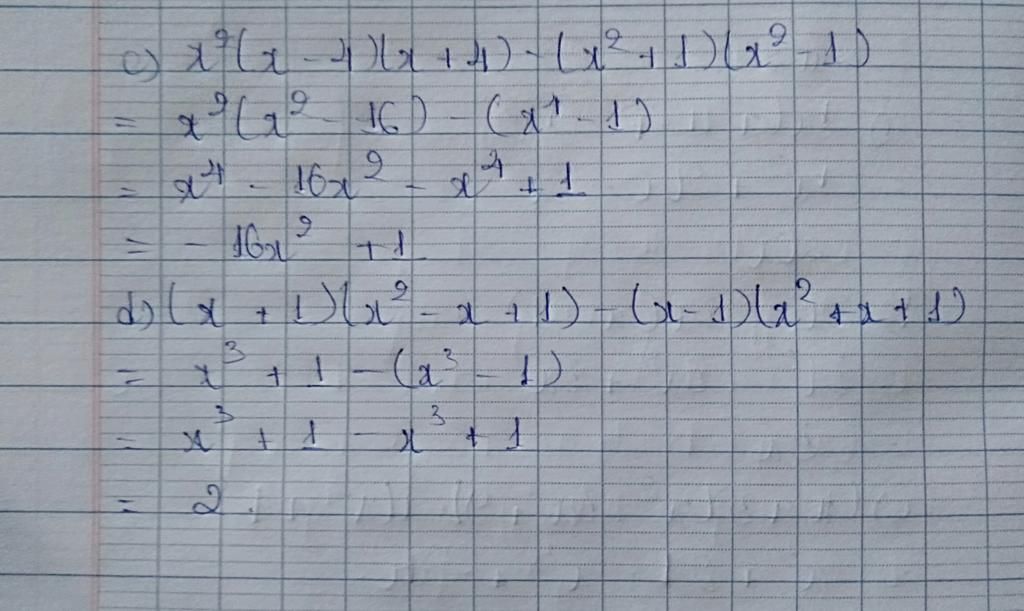 c) x²(x - 4)(x + 4) - (x² + 1)(x² - 1)
= x²(x² - 16) - (x⁴ - 1)
= x⁴ - 16x² - x⁴ + 1
= - 16x² + 1
d) (x + 1)(x² - x + 1) - (x - 1)(x² + x + 1)
= x³ + 1 - (x³ - 1)
= x³ + 1 - x³ + 1
= 2.